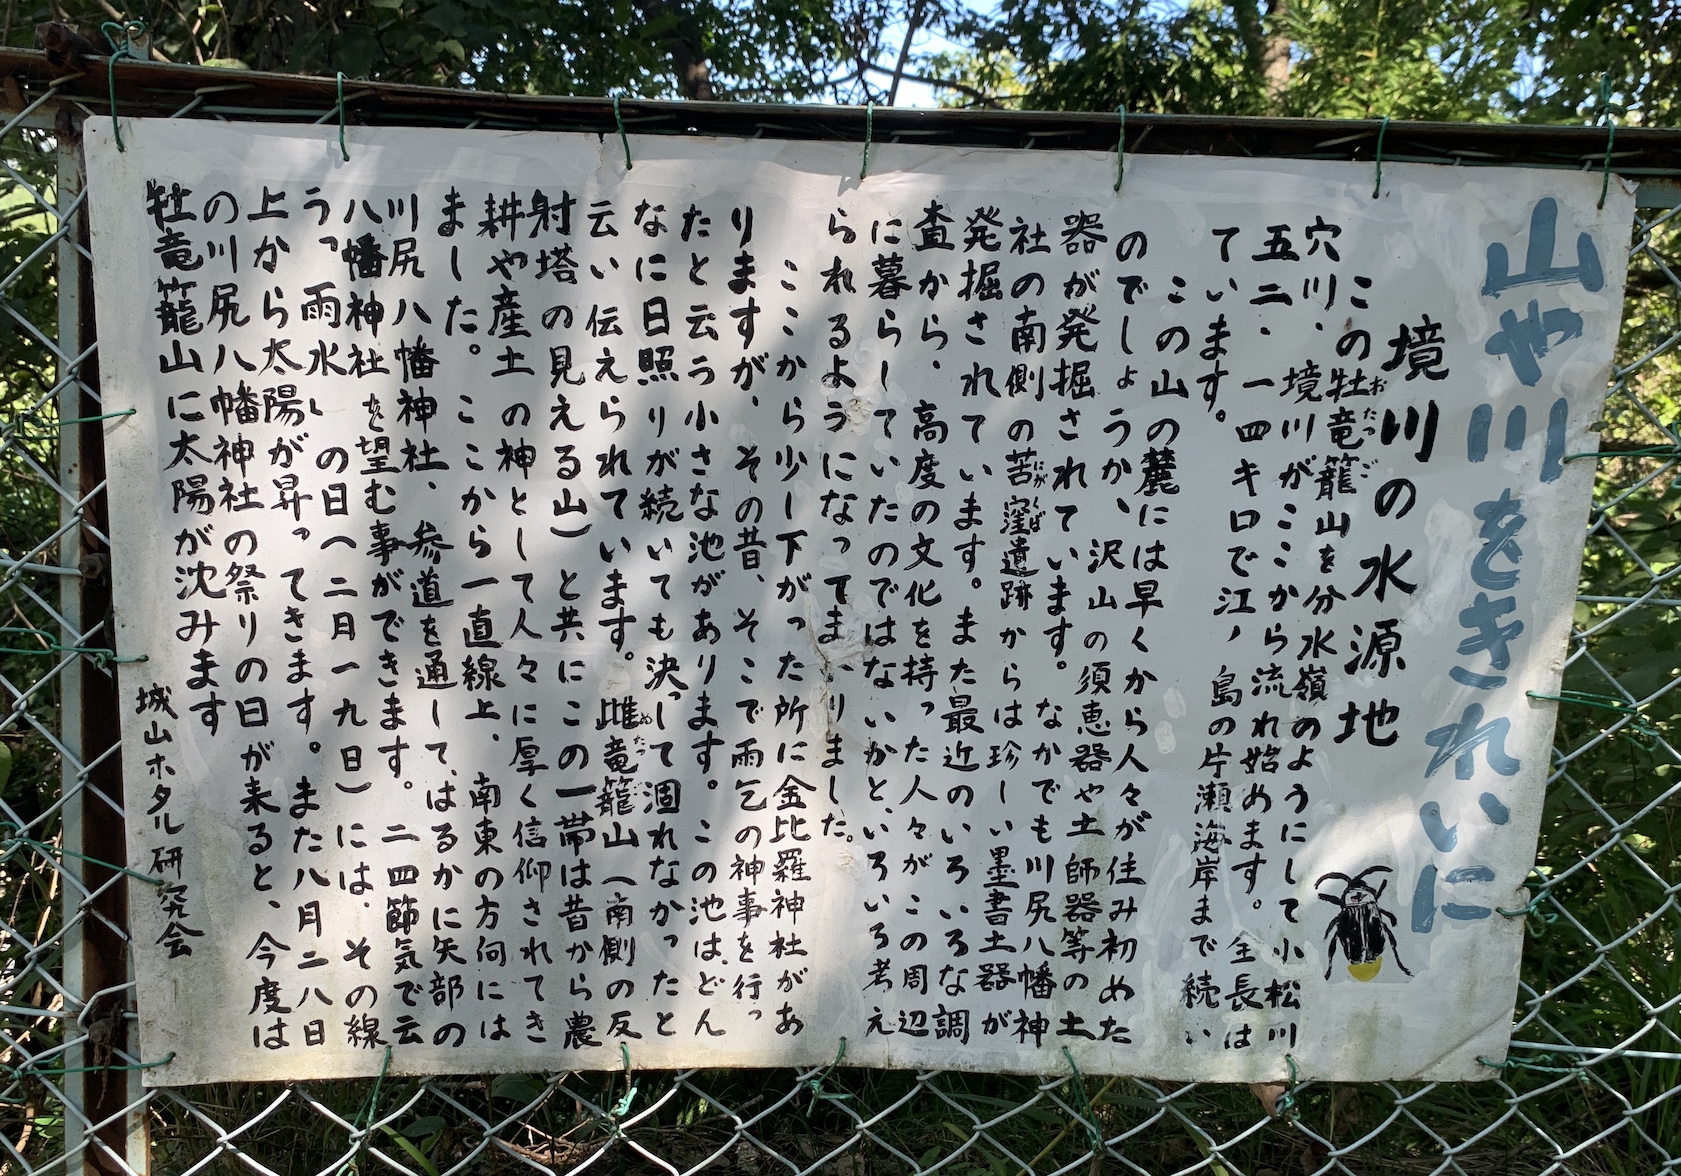 山や川をきれいに
境川の水源地
この牡竜籠山を分水嶺のようにして小松川
穴川、境川がここから流れ始めます。全長は
五二、一四キロで江ノ島の片瀬海岸まで続い
ています。
この山の麓には早くから人々が住み初めた
のでしょうか、沢山の須恵器や土師器等の土
器が発掘されています。なかでも川尻八幡神
社の南側の苦窪遺跡からは珍しい墨書土器が
発掘されています。また最近のいろいろな調
査から、高度の文化を持った人々がこの周辺
に暮らしていたのではないかと、いろいろ考え
られるようになってまいりました。
ここから少し下がった所に金比羅神社があ
りますが、その昔、そこで雨乞の神事を行っ
たと云う小さな池があります。この池は、どん
なに日照りが続いても決っして涸れなかったと
云い伝えられています。雌竜籠山(南側の反
射塔の見える山)と共にこの一帯は昔から農
耕や産土の神として人々に厚く信仰されてき
ました。ここから一直線上、南東の方向には
川尻八幡神社、参道を通して、はるかに矢部の
八幡神社を望む事ができます。二四節気で云
う「雨水」の日(二月一九日)には、その線
上から太陽が昇ってきます。また八月二八日
の川尻八幡神社の祭りの日が来ると、今度は
牡竜籠山に太陽が沈みます
城山ホタル研究会